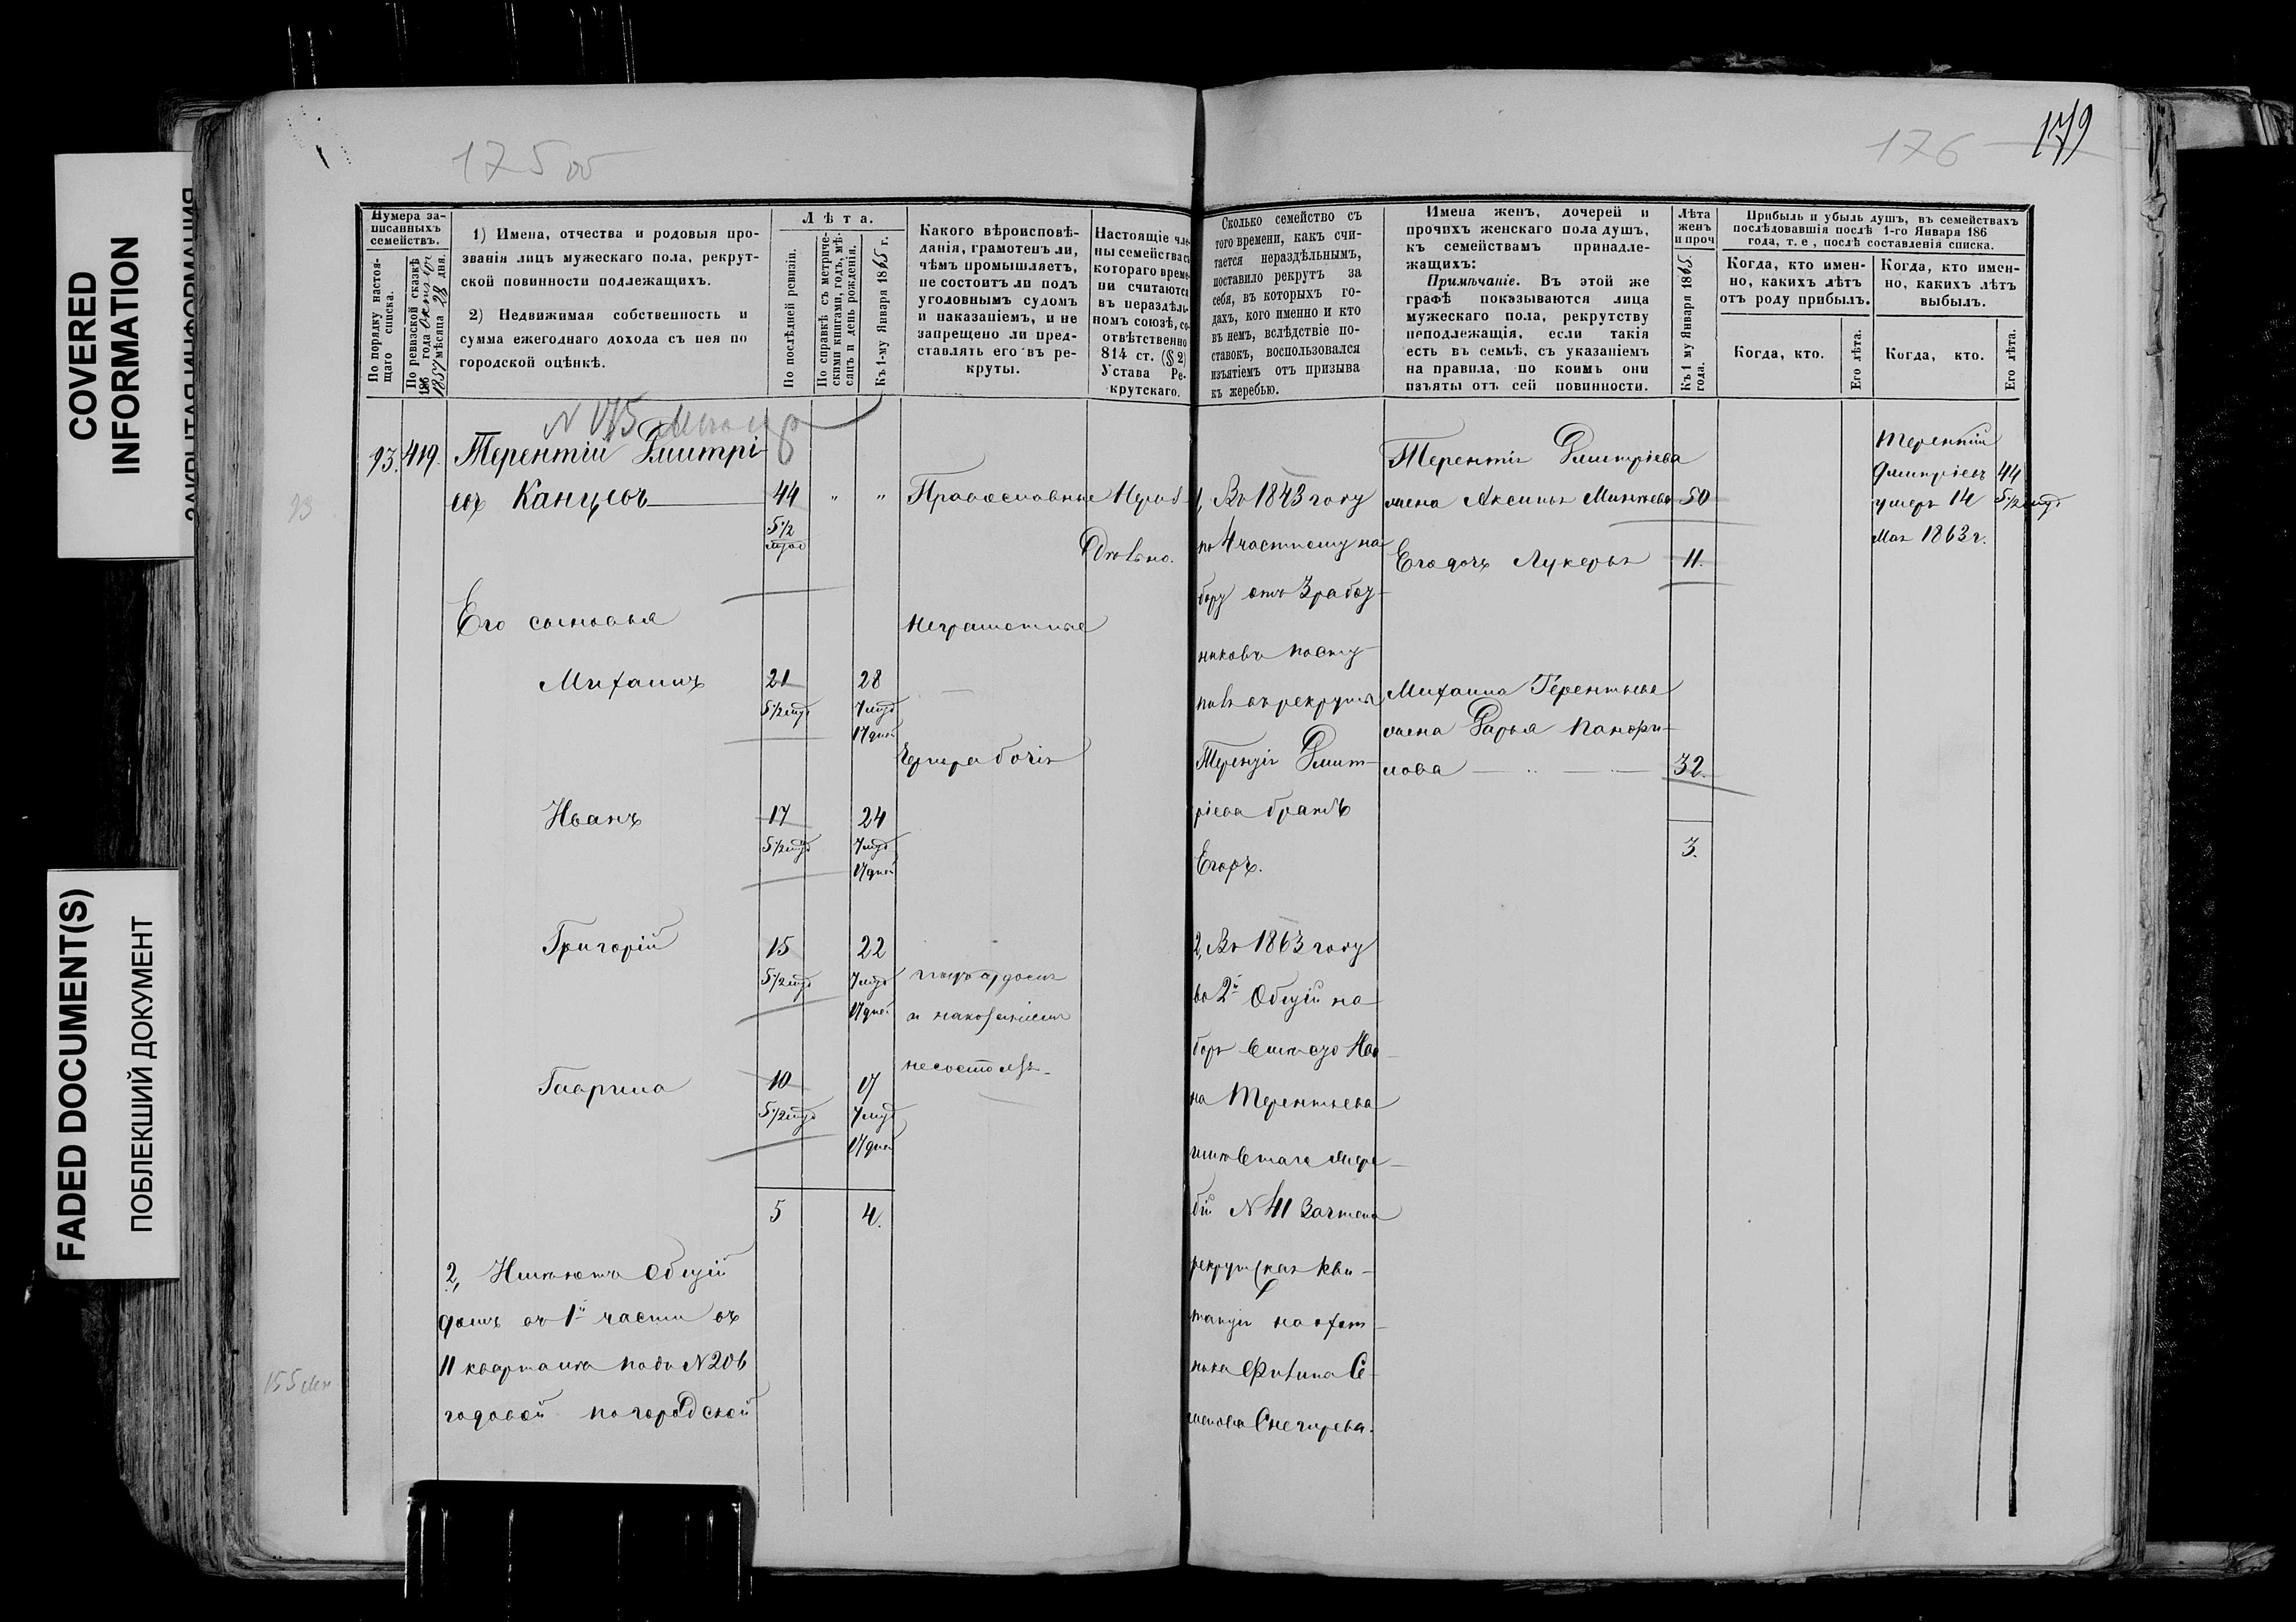 COVERED
INFORMATION
ЗАКРЫТАЯ ИНФОРМАЦИЯ
FADED DOCUMENT(S)
ПОБЛЕКШИЙ ДОКУМЕНТ
175 об
176
179
Нумера за-
писанныхъ
семействъ.
По порядку настоя-
щаго списка.
По ревизской сказкѣ
186 1857 года октября
мѣсяца 28 дня.
1) Имена, отчества и родовыя про-
званія лицъ мужескаго пола, рекрут-
ской повинности подлежащихъ.
2) Недвижимая собственность и
сумма ежегоднаго дохода съ нея по
городской оцѣнкѣ.
Лѣта.
По послѣдней ревизіи.
По справкѣ съ метриче-
скими книгами, годъ, мѣ-
сяцъ и день рожденія.
Къ 1-му Января 1865 г.
Какого вѣроисповѣ-
данія, грамотенъ ли,
чѣмъ промышляетъ,
не состоитъ ли подъ
уголовнымъ судомъ
и наказаніемъ, и не
запрещено ли пред-
ставлять его въ ре-
круты.
Настоящіе чле-
ны семейства съ
котораго време-
ни считаются
въ нераздѣль-
номъ союзѣ, со-
отвѣтственно
814 ст. (§ 2)
Устава Ре-
крутскаго.
Сколько семейство съ
того времени, какъ счи-
тается нераздѣльнымъ,
поставило рекрутъ за
себя, въ которыхъ го-
дахъ, кого именно и кто
въ немъ, вслѣдствіе по-
ставокъ, воспользовался
изъятіемъ отъ призыва
къ жеребью.
Имена женъ, дочерей и
прочихъ женскаго пола душъ,
къ семействамъ принадле-
жащихъ:
Примѣчаніе. Въ этой же
графѣ показываются лица
мужескаго пола, рекрутству
неподлежащія, если такія
есть въ семьѣ, съ указаніемъ
на правила, по коимъ они
изъяты отъ сей повинности.
Лѣта
женъ
и проч
Къ 1 му Января 1865
года.
Прибыль и убыль душъ, въ семействахъ
послѣдовавшія послѣ 1-го Января 186
года, т. е, послѣ составленія списка.
Когда, кто имен-
но, какихъ лѣтъ
отъ роду прибылъ.
Когда, кто имен-
но, какихъ лѣтъ
выбылъ.
Когда, кто.
Его лѣта.
Когда, кто.
Его лѣта.
93. 419. Терентій Дмитрі-
евъ Канцевъ 44 " "
5 1/2
мѣся
Его сыновья
Михаилъ 21 28
5 1/2 мѣс 7 мѣс
17 дней
Иванъ 17 24
5 1/2 мѣс 7 мѣс
17 дней
Григорій 15 22
5 1/2 мѣс 7 мѣс
17 дней
Гаврила 10 17
5 1/2 мѣс 7 мѣс
17 дней
5 4.
2, Имѣютъ общій
домъ въ 1й части въ
11 квартала подъ N 206
годовой по городской
93
Православные
неграмотные
Чернорабочіе
и наказаніемъ
несостоятъ
Нераз
дѣльно.
1, Въ 1843 году
по 4 частному на
бору отъ 3 рабоу-
никовъ посту-
пивъ въ рекруты
Терентія Дмит-
ріева братъ
Егоръ.
2, Въ 1863 году
во 2й Общій на
боръ вмѣсто Ива
на Терентьева
имѣвшаго жере-
бій N 41 Зачтена
рекрутская кви-
танція на охот-
ника Филипа Се-
менова Снегирева.
Терентія Дмитріева
жена Аксинья Минѣева 50
Его дочь Лукерья 11.
Михаила Терентьева
жена Дарья Панфи-
лова 32.
3.
Терентій
Дмитріевъ 44
умеръ 14 5 1/2 мѣс
Мая 1863 г.